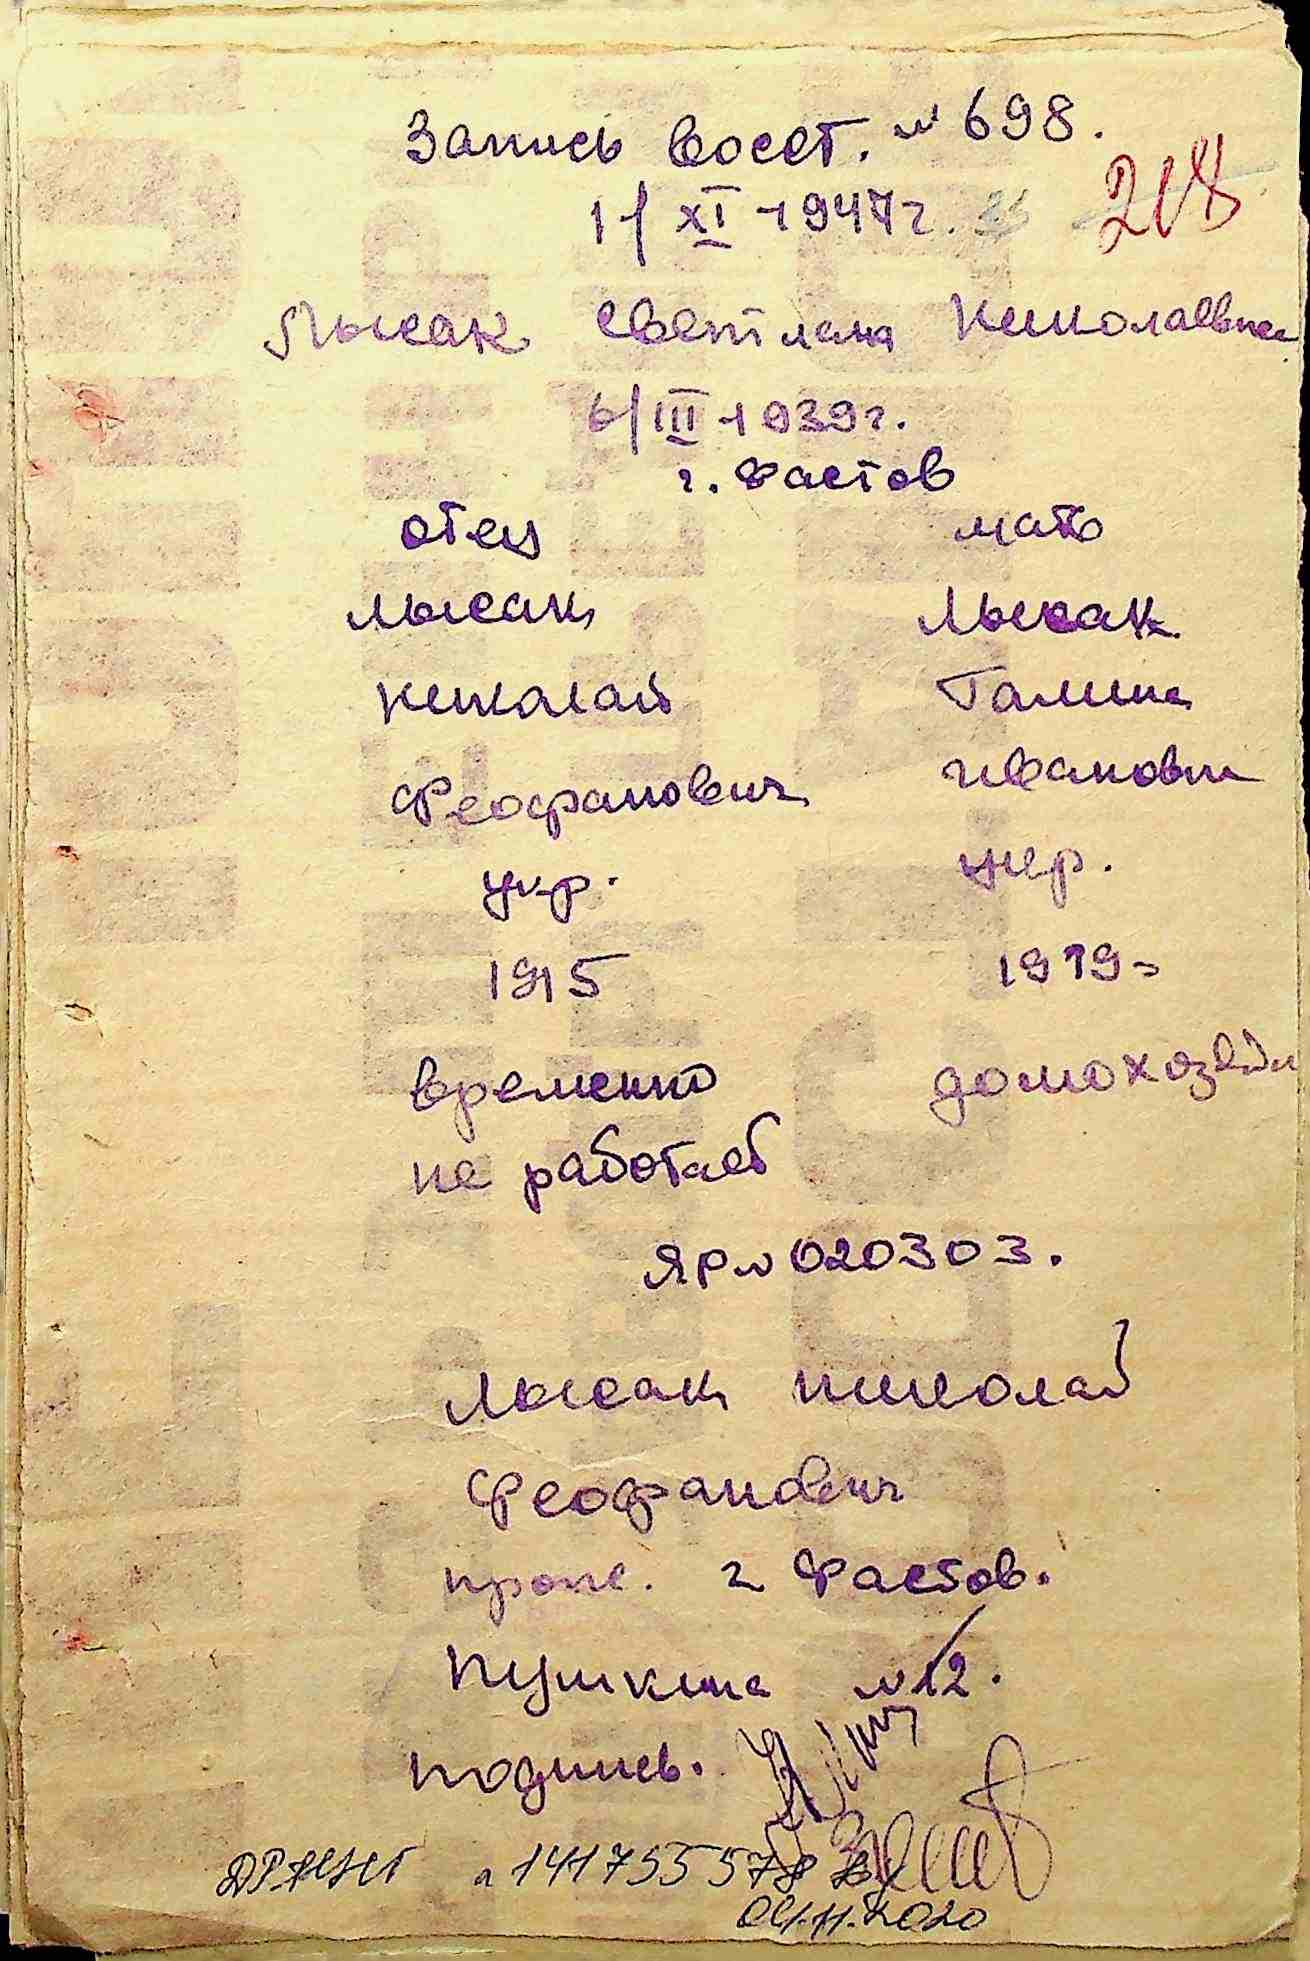 Запись восст. № 698.
1/XI-1947г.
218
Лысак Светлана Николаевна
6/III-1939г.
г. Фастов
отец мать
Лысак Лысак
Николай Галина
Феофанович Ивановна
укр. укр.
1915 1919
временно домохозяйка
не работает
ЯР № 020303.
Лысак Николай
Феофанович
прож. г Фастов.
Пушкина № 12.
подпись.
141755578
04.11.2020